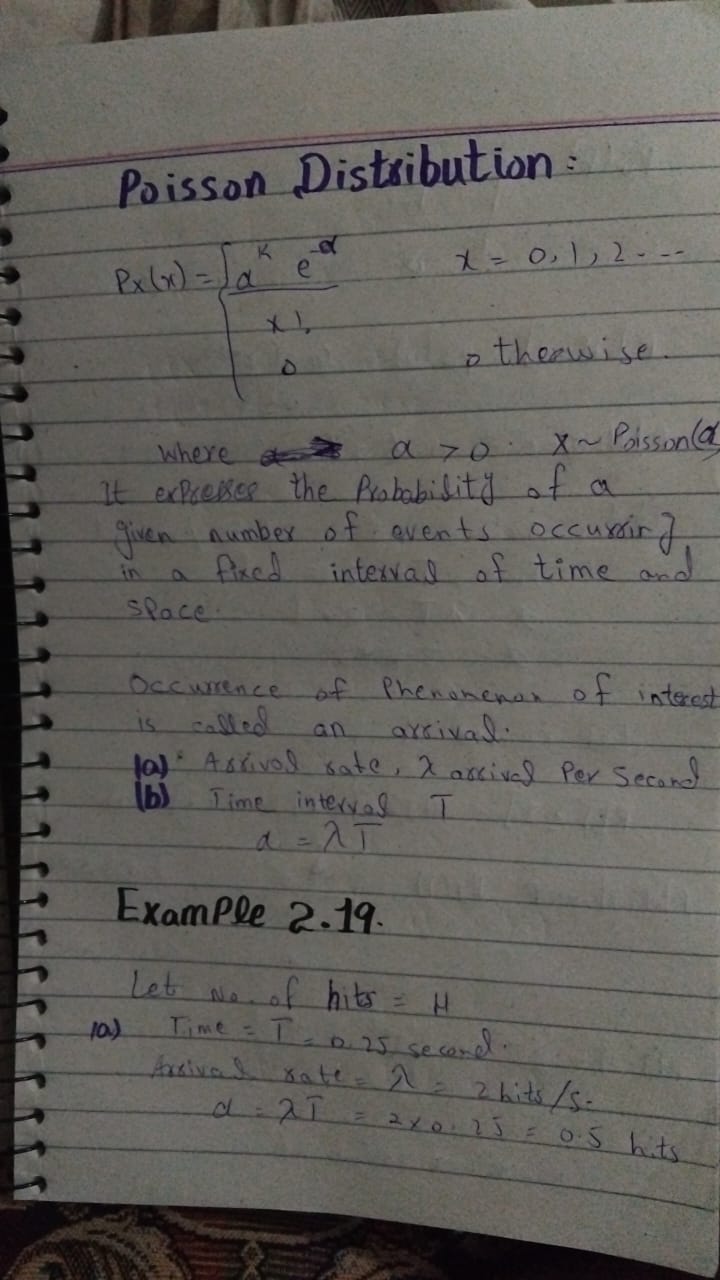 Poisson Distribution:
Px(x) = { α^k e^-α / x!, x = 0, 1, 2 ----
0 otherwise.
where α > 0. X ~ Poisson(α
It expresses the Probability of a
given number of events occurring
in a fixed interval of time and
space.
Occurrence of Phenomenon of interest
is called an arrival.
(a) Arrival rate, λ arrival Per Second
(b) Time interval T
α = λT
Example 2.19.
Let No. of hits = H
(a) Time = T = 0.25 second.
Arrival rate = λ = 2 hits/s.
α = λT = 2x0.25 = 0.5 hits